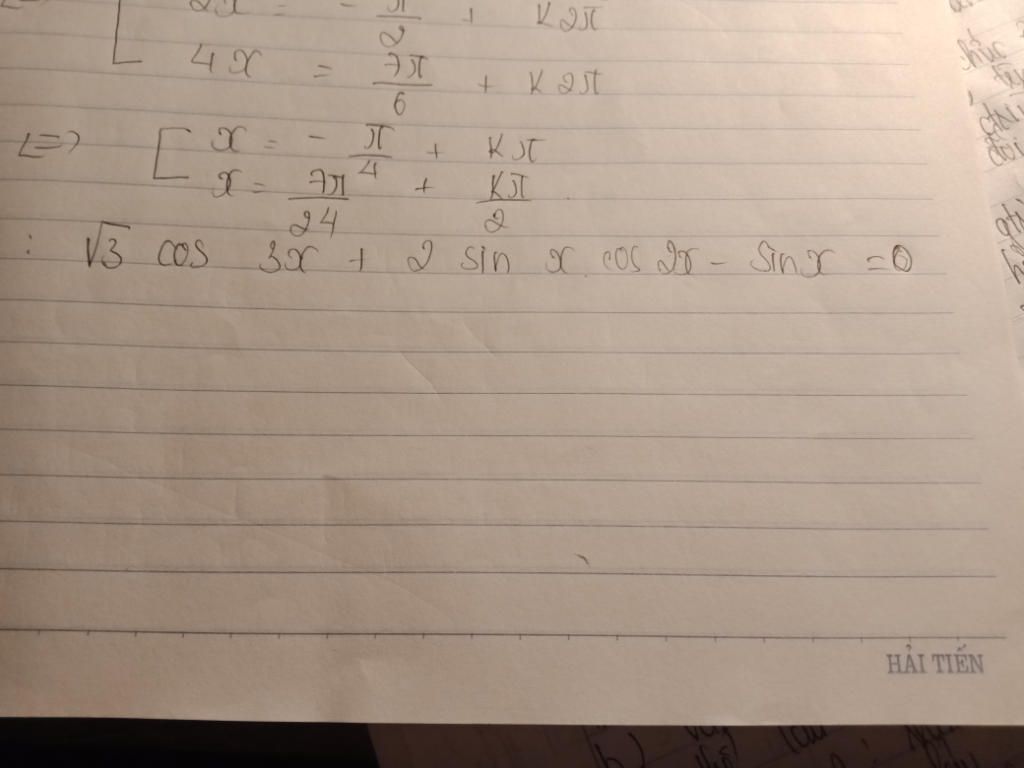 2x = - π/2 + K2π
4x = 7π/6 + K2π
<=> [ x = - π/4 + Kπ
x = 7π/24 + Kπ/2
: √3 cos 3x + 2 sin x. cos 2x - sin x = 0
HẢI TIẾN